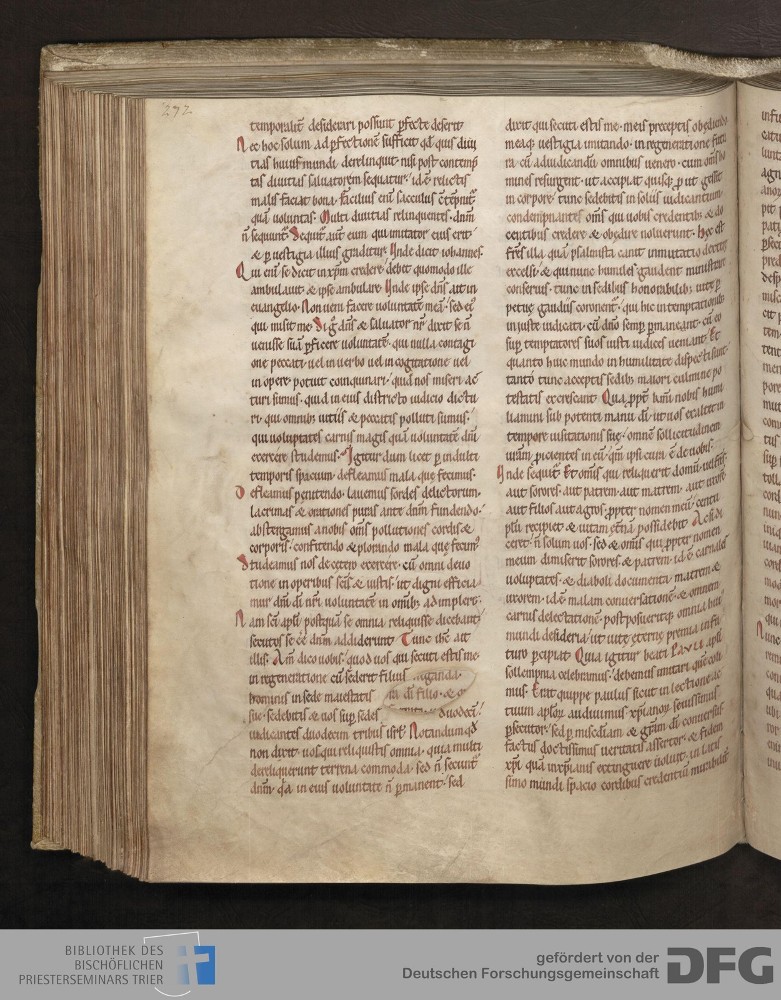 292
temporalit̄ desiderari possunt p̄fecte deserit
Nec hoc solum ad p̄fectionē sufficit qd̄ quis diui
tias huius mundi derelinquit nisi post contemp
tas diuitias saluatorem sequatur. id ē relictis
malis faciat bona. facilius eni̅ sacculus ctēpnit̄
quā uoluntas. Multi diuitias relinquentes. dn̄m
n̄ sequunt̄. Sequit̄ aut̄ eum qui imitator eius erit
& p̄ uestigia illius graditur. Unde dicit iohannes.
Qui eni̅ se dicit in xp̄m credere. debet quomodo ille
ambulauit & ipse ambulare. Unde ipse dn̄s ait in
euangelio. Non ueni facere uoluntatē meā. sed ei᷒
qui misit me. Si g̊ dn̄s & saluator nr̄ dixit se n̄
uenisse suā p̄ficere uoluntatē. qui nulla contagi
one peccati uel in uerbo uel in cogitatione uel
in opere potuit coinquinari. quid nos miseri ac
turi sumus. quid in eius districto iudicio dictu
ri. qui omnib; uitiis & peccatis polluti sumus.
qui uoluptates carnis magis quā uoluntatē dn̄i
exercere studemus. Igitur dum licet p̄ indulti
temporis spacium. defleamus mala que fecimus.
Defleamus penitendo. lauemus sordes delictorum.
lacrimas & orationes puras ante dn̄m fundendo.
abstergamus a nobis om̄s pollutiones cordis &
corporis. confitendo & plorando mala que fecim᷒.
Studeamus nos de cetero exercere. cū omni deuo
tione in operibus sc̄is & iustis. ut digni efficia
mur dn̄i di̅ nr̄i uoluntatē in omib; adimplere.
Nam sc̄i apl̄i postquā se omnia reliquisse dicebant.
secutos se eē dn̄m addiderunt. Tunc ih̄c ait
illis. Am̄ dico uobis. quod uos qui secuti estis me.
in regeneratione cū sederit filius
hominis in sede maiestatis di̅ filio. &
sue. sedebitis & uos sup̄ sedes duodeci̅.
iudicantes duodecim tribus isrl̄. Notandum qd̄
non dixit. uos qui reliquistis omnia. quia multi
dereliquerunt terrena commoda. sed n̄ secunt̄
dn̄m. q̇a in eius uoluntate n̄ p̄manent. Sed
dixit qui secuti estis me. meis preceptis obediendo
meaq; uestigia imitando. in regeneratione futu
ra. cū ad iudicandū omnibus uenero. cum om̄s ho
mines resurgent. ut accipiat quisq; p̄ ut gessit
in corpore. tunc sedebitis in soliis iudicantium.
condempnantes om̄s qui uobis credentib; & do
centibus credere & obedire noluerunt. Hęc est
fr̄es illa quā psalmista canit inmutatio dextere
excelsi. & qui nunc humiles gaudent ministrare
conseruis. tunc in sedibus honorabilib; uite p̄
petuę gaudiis coronent̄. qui hic in temptationib;
iniuste iudicati. cū dn̄o semp̄ p̄maneant. cū eo
sup̄ temptatores suos iusti iudices ueniant. Et
quanto huic mundo in humilitate dispecti sunt.
tanto tunc acceptis sedib; maiori culmine po
testatis excrescant. Qua p̄pt̄ km̄i nobis humi
liamini sub potenti manu di̅. ut uos exaltet in
tempore uisitationis suę. omnē sollicitudinem
urām p̄icientes in eū. qm̄ ipsi cura ē de uobis.
Unde sequit̄. Et om̄is qui reliquerit domū. uel fr̄es.
aut sorores. aut patrem. aut matrem. aut uxorē.
aut filios. aut agros. p̄pter nomen meū. centu
plū recipiet. & uitam et̄nā possidebit. Ac si di
ceret. n̄ solum uos. sed & om̄is qui p̄pter nomen
meum dimiserit sorores. & patrem. id ē carnales
uoluptates. & diaboli documenta. matrem &
uxorem. id ē malam conuersationē. & omnem
carnis delectationē. postposueritq; omnia hui᷒
mundi desideria. ut uite eternę premia in fu
turo p̄cipiat. Quia igitur beati PAVLI apl̄i
sollempnia celebramus. debemus imitari quē coli
mus. Erat quippe paulus sicut in lectione ac
tuum aplōr audiuimus. xp̄ianor̄ seuissimus
p̄secutor. sed p̄ misc̄diam & grām di̅ conuersus.
factus doctissimus ueritatis assertor. & fidem
xp̄i quā in xp̄ianis extinguere uoluit. in latis
simo mundi spacio cordibus credentiū mirabilit̄
BIBLIOTHEK DES
BISCHÖFLICHEN
PRIESTERSEMINARS TRIER
gefördert von der
Deutschen Forschungsgemeinschaft
DFG